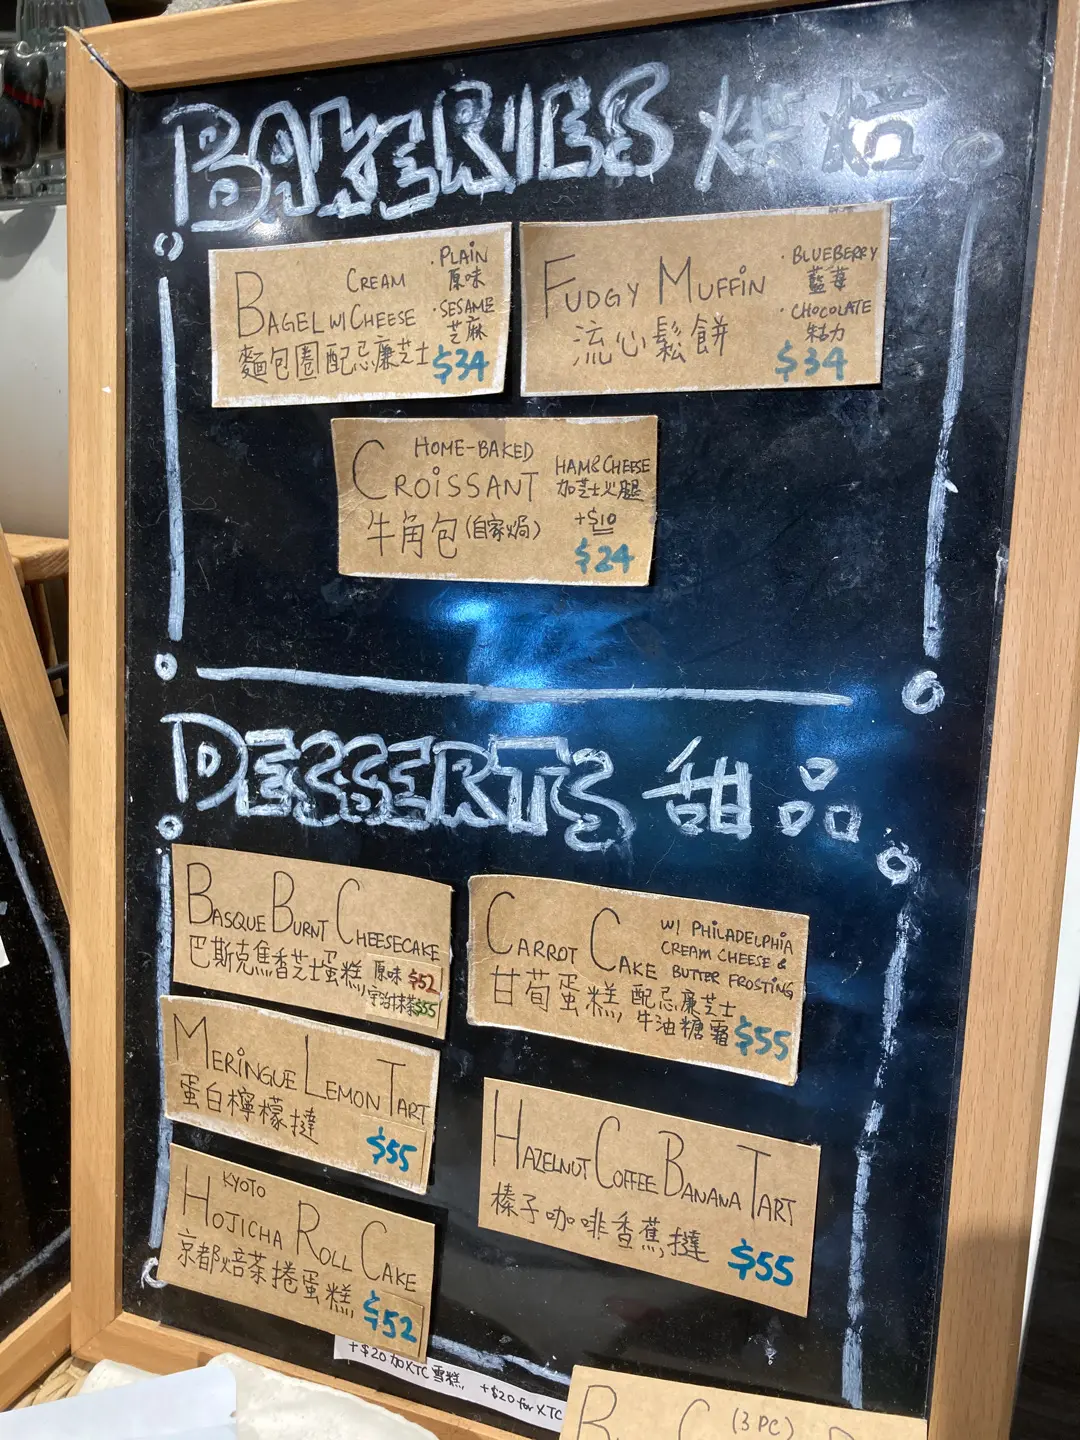 BAKERIES 烘焙
BAGEL W/ CREAM CHEESE
麵包圈配忌廉芝士
· PLAIN
原味
· SESAME
芝麻
$34
FUDGY MUFFIN
流心鬆餅
· BLUEBERRY
藍莓
· CHOCOLATE
朱古力
$34
HOME-BAKED
CROISSANT
牛角包(自家焗)
HAM & CHEESE
加芝士火腿
+$10
$24
DESSERTS 甜品
BASQUE BURNT CHEESECAKE
巴斯克焦香芝士蛋糕
原味 $52
宇治抹茶 $55
CARROT CAKE
甘荀蛋糕
W/ PHILADELPHIA
CREAM CHEESE &
BUTTER FROSTING
配忌廉芝士
牛油糖霜
$55
MERINGUE LEMON TART
蛋白檸檬撻
$55
HAZELNUT COFFEE BANANA TART
榛子咖啡香蕉撻
$55
KYOTO
HOJICHA ROLL CAKE
京都焙茶捲蛋糕
$52
+$20 加XTC雪糕 +$20 for XTC
(3 PC)